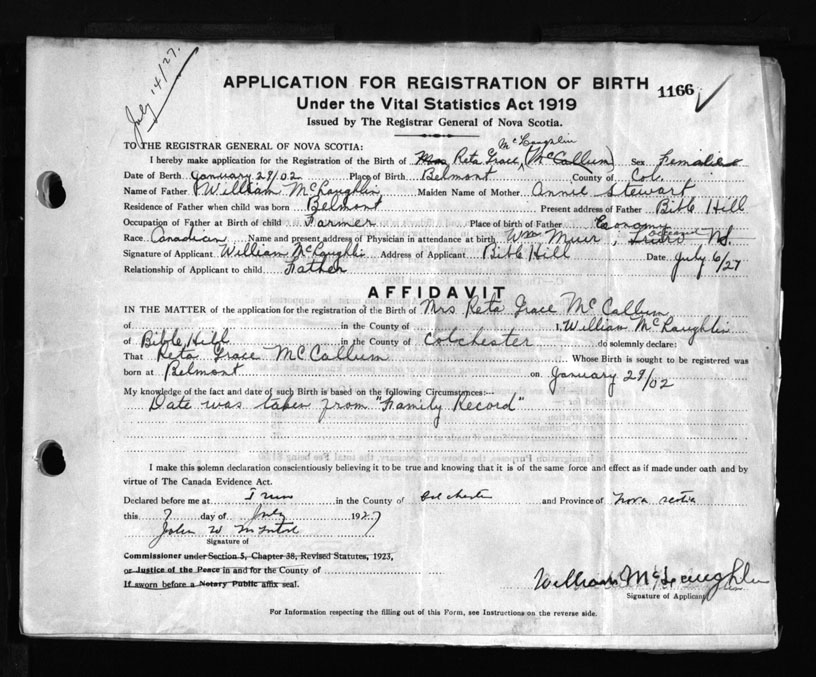 July 14/27.
APPLICATION FOR REGISTRATION OF BIRTH 1166
Under the Vital Statistics Act 1919
Issued by The Registrar General of Nova Scotia.
TO THE REGISTRAR GENERAL OF NOVA SCOTIA:
McLaughlin
I hereby make application for the Registration of the Birth of Mrs Reta Grace (McCallum) Sex Female
Date of Birth January 29/02 Place of Birth Belmont County of Col.
Name of Father William McLaughlin Maiden Name of Mother Annie Stewart
Residence of Father when child was born Belmont Present address of Father Bible Hill
Occupation of Father at Birth of child Farmer Place of birth of Father Economy
Race Canadian Name and present address of Physician in attendance at birth Wm Muir, Truro NS.
Signature of Applicant William McLaughlin Address of Applicant Bible Hill Date July 6/27
Relationship of Applicant to child Father
AFFIDAVIT
IN THE MATTER of the application for the registration of the Birth of Mrs Reta Grace McCallum
of in the County of I, William McLaughlin
of Bible Hill in the County of Colchester do solemnly declare:
That Reta Grace McCallum Whose Birth is sought to be registered was
born at Belmont on January 29/02
My knowledge of the fact and date of such Birth is based on the following Circumstances:—
Date was taken from "Family Record"
I make this solemn declaration conscientiously believing it to be true and knowing that it is of the same force and effect as if made under oath and by
virtue of The Canada Evidence Act.
Declared before me at Truro in the County of Colchester and Province of Nova Scotia
this 7 day of July 1927
John W
Signature of
Commissioner under Section 5, Chapter 38, Revised Statutes, 1923,
or Justice of the Peace in and for the County of
If sworn before a Notary Public affix seal.
William McLaughlin
Signature of Applicant
For Information respecting the filling out of this Form, see Instructions on the reverse side.